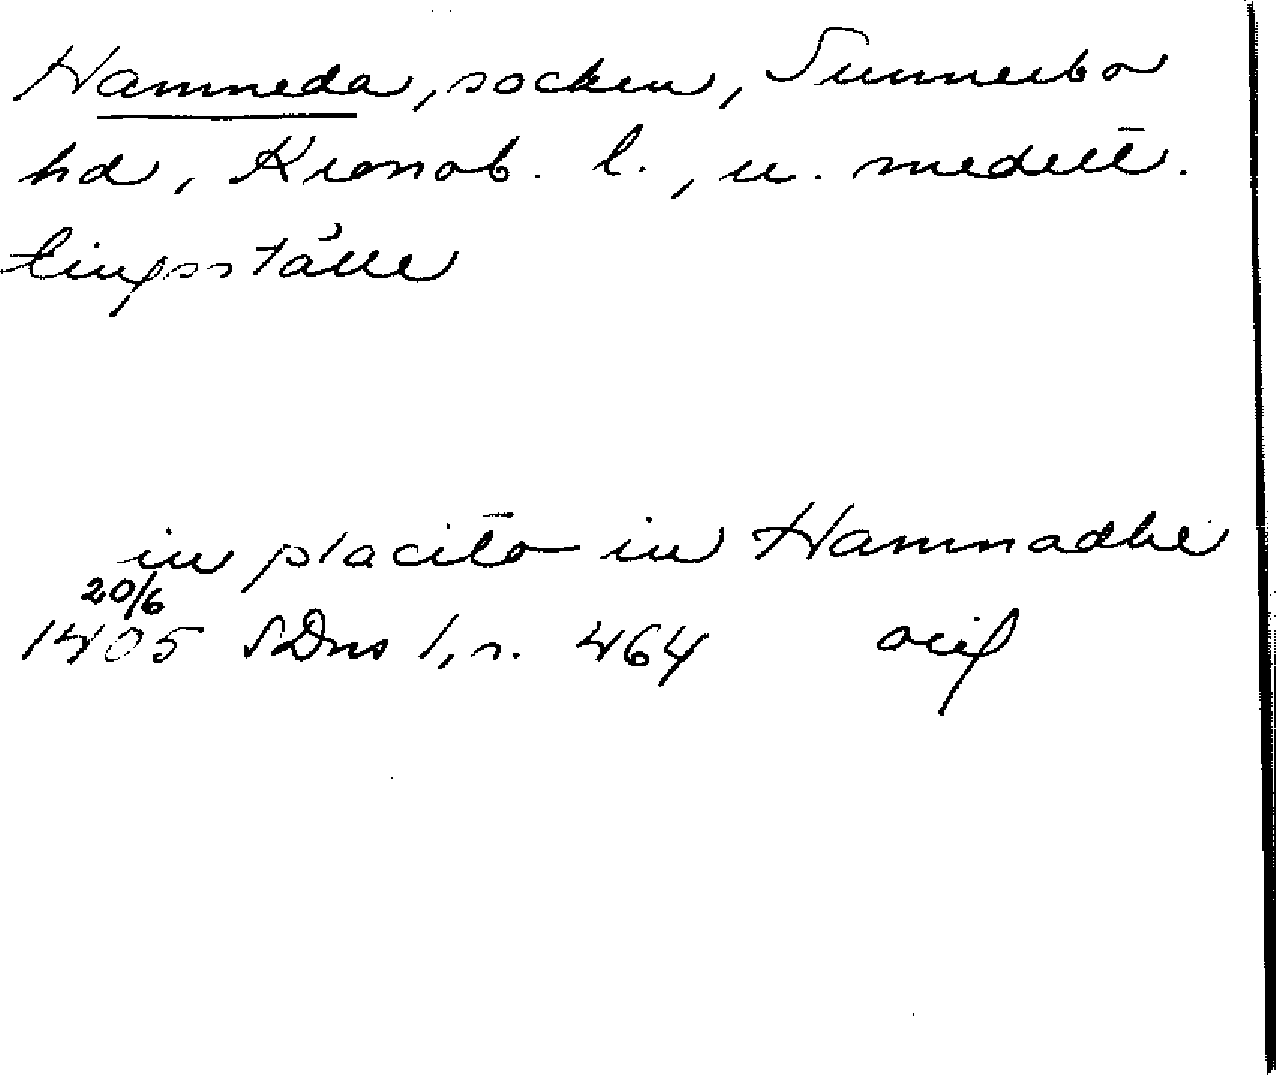 Hamneda, socken, Sunnerbo
hd, Kronob. l., u. medelt.
tingsställe
in placito in Hamnadhe
20/6
1405 SDns 1, s. 464 orig